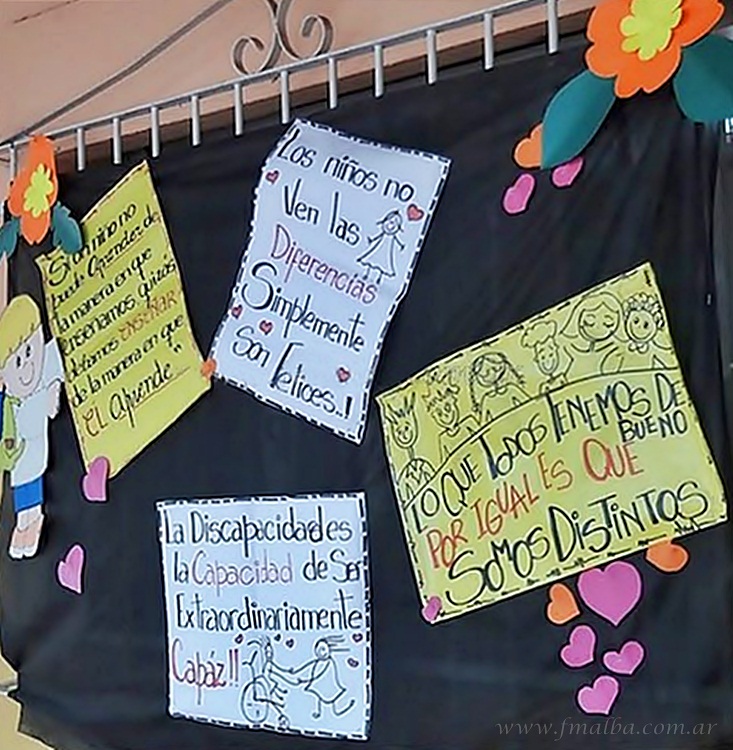 Si un niño no
puede Aprender de
la manera en que
enseñamos, quizás
debamos ENSEÑAR
de la manera en que
EL aprende..."
Los niños no
Ven las
Diferencias
Simplemente
Son Felices..!
LO QUE TODOS TENEMOS DE
BUENO
POR IGUAL ES QUE
SOMOS DISTINTOS
La Discapacidad es
la Capacidad de Ser
Extraordinariamente
Capáz!!
www.fmalba.com.ar